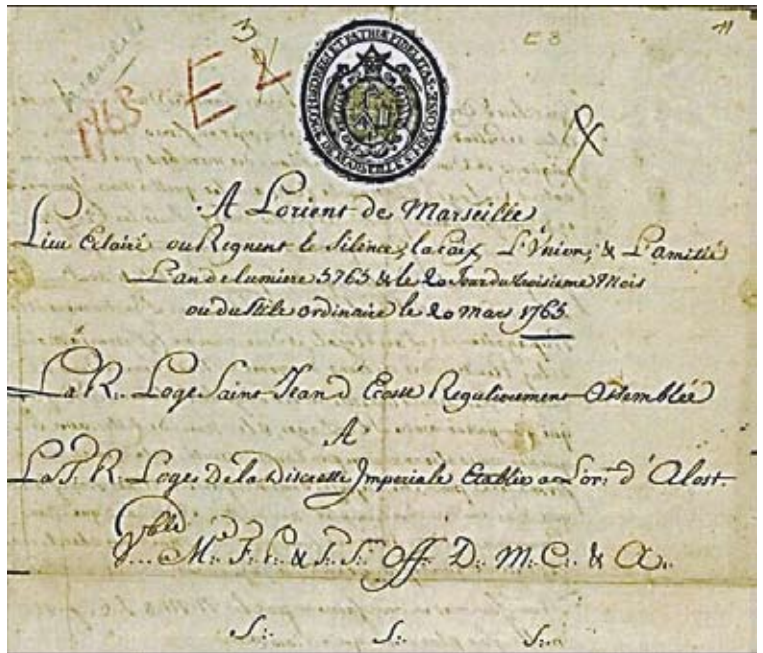 3
E 2
1765
E 3
11
A Lorient de Marseille
Lieu Eclairé ou Regnent le Silence, la paix, L'Union, & L'amitié
L'an de lumiere 5765 & le 20 Jour du troisieme Mois
ou du Stile ordinaire le 20 mars 1765
La R∴ Loge Saint Jean d'Ecosse Regulierement Assemblée
A
La T∴ R∴ Loge De la Discrette Imperiale Etablie a Lor∴ d'Alost.
V∴ble M∴ F∴ & S∴ Off D∴ M∴ C∴ & A∴
S∴ S∴ S∴